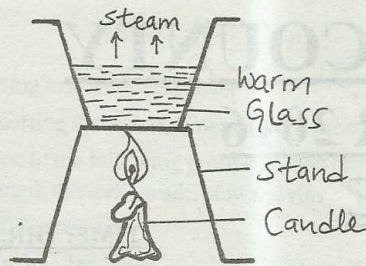 steam
warm
Glass
Stand
Candle